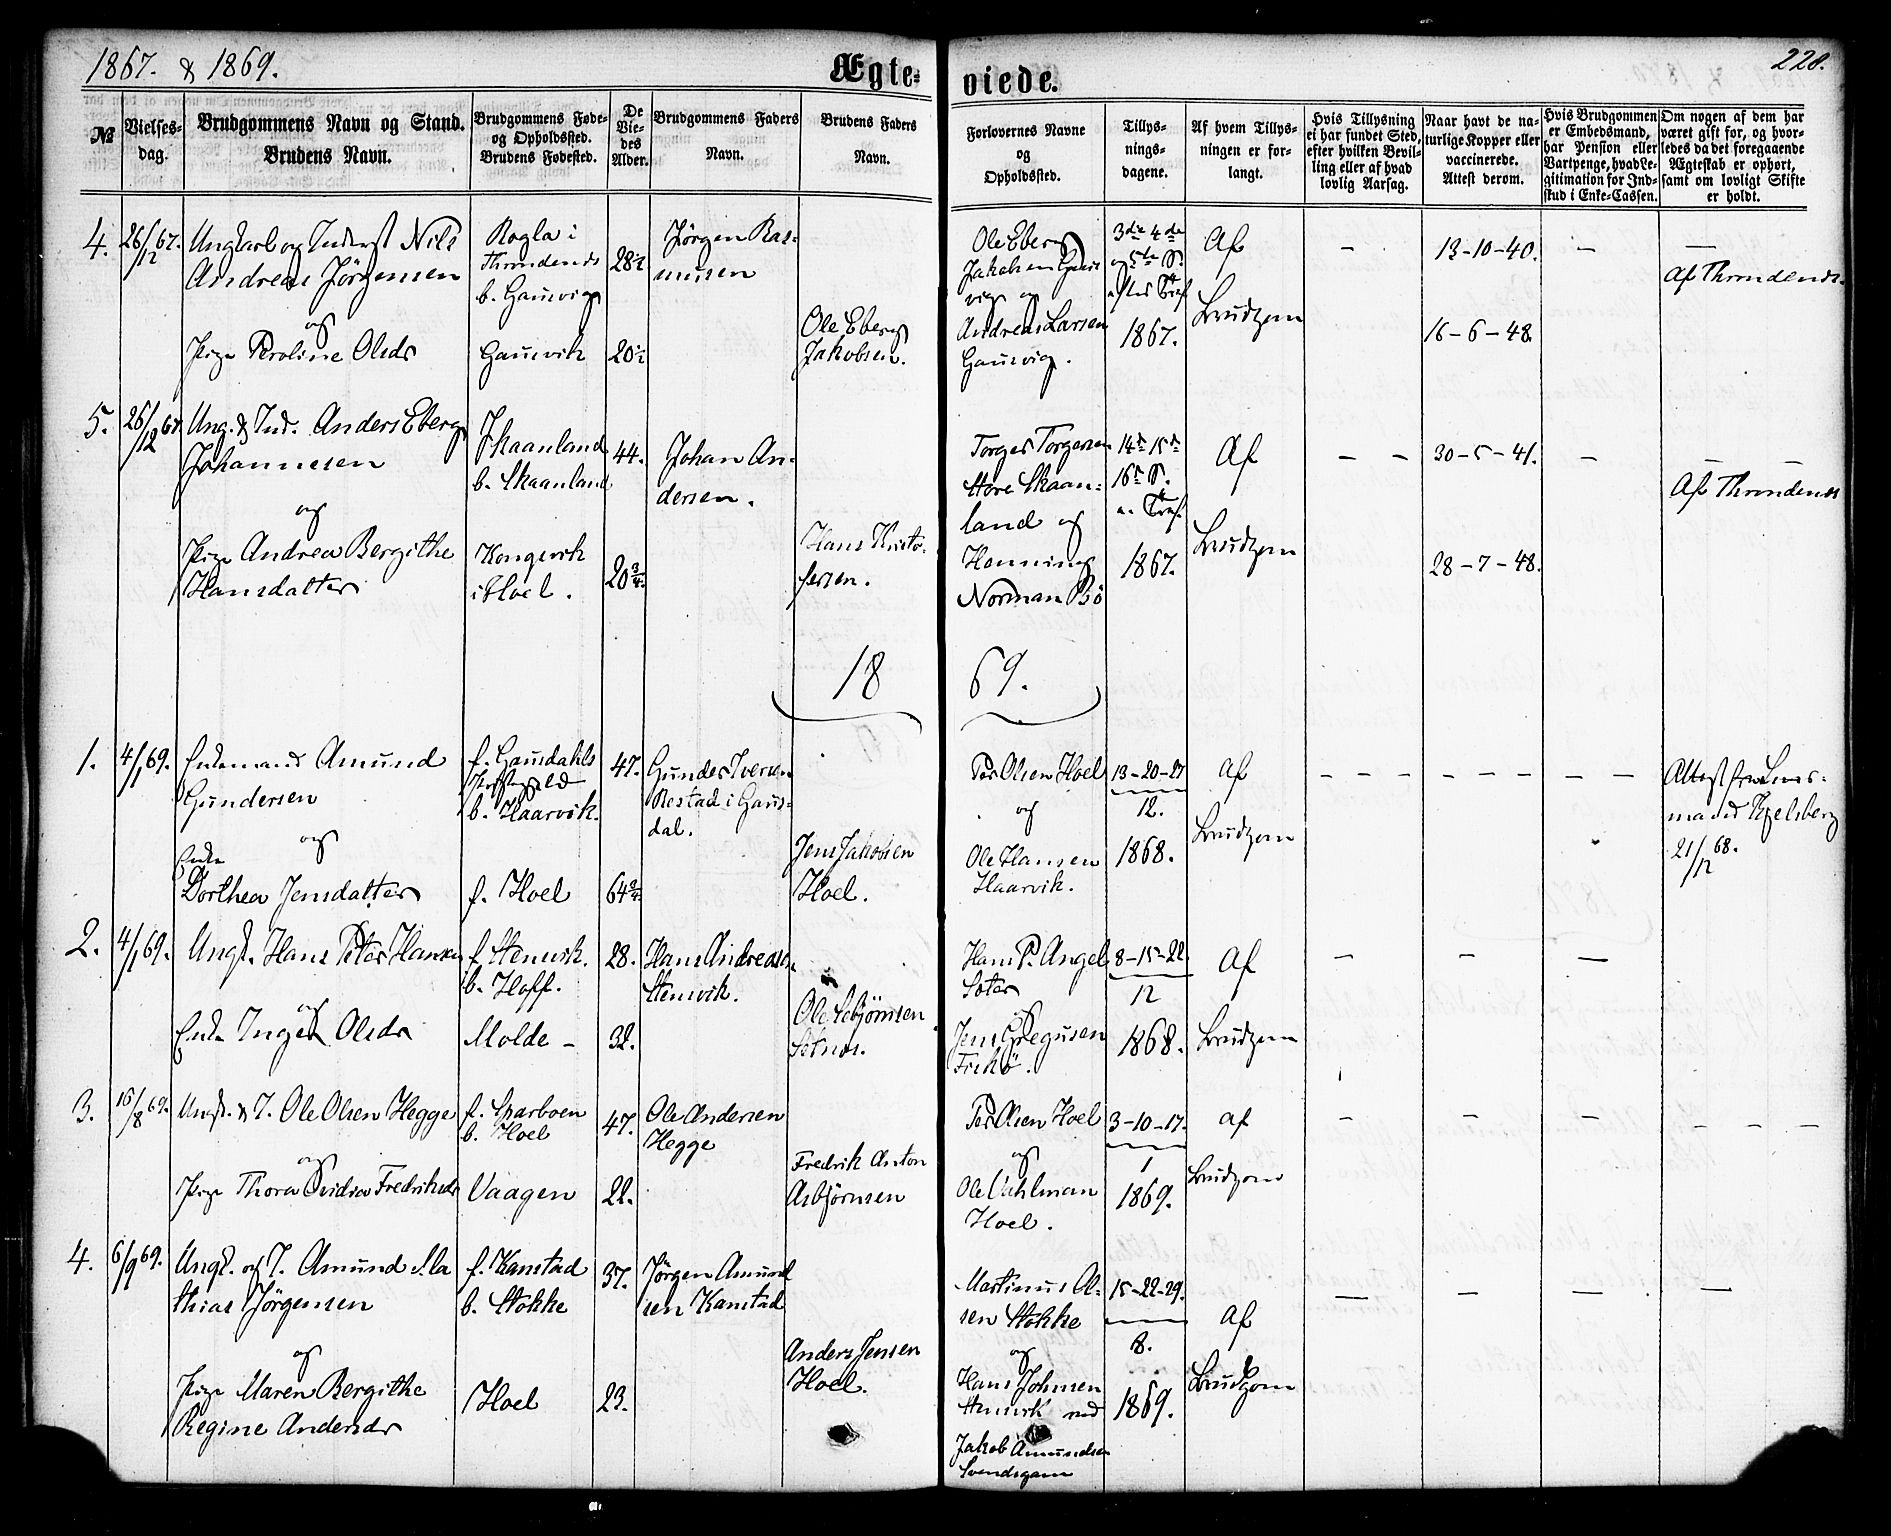 1867. & 1869.
Ægte-
viede.
228.
№
Vielses-
dag.
Brudgommens Navn og Stand.
Brudens Navn.
Brudgommens Føde-
og Opholdssted.
Brudens Fødested.
De
Vie-
des
Alder.
Brudgommens Faders
Navn.
Brudens Faders
Navn.
Forlovernes Navne
og
Opholdssted.
Tillys-
nings-
dagene.
Af hvem Tillys-
ningen er for-
langt.
Hvis Tillysning
ei har fundet Sted,
efter hvilken Bevil-
ling eller af hvad
lovlig Aarsag.
Naar havt de na-
turlige Kopper eller
vaccinerede.
Attest derom.
Hvis Brudgommen
er Embedsmand,
har Pension eller
Vartpenge, hvad Le-
gitimation for Ind-
skud i Enke-Cassen.
Om nogen af dem har
været gift før, og hvor-
ledes da det foregaaende
Ægteskab er ophørt,
samt om lovligt Skifte
er holdt.
4. 26/12 67. Ungkarl og Inderst Nils
Andreas Jörgensen
og
Pige Peroline Olsdr
Rogla i
Throndenes
b. Gausvig
Gausvik
28 1/2
20 1/2
Jörgen Ras-
mussen
Ole Eberg
Jakobsen.
Ole Eberg
Jakobsen Gaus
vig og
Andreas Larsen
Gausvig.
3die 4de
og 5te S.
efter Tref.
1867.
Af
Brudgom
-
13-10-40.
16-6-48.
-
-
Af Throndenes.
5. 26/12 67 Ung. & Ind. Anders Eberg
Johannesen
og
Pige Andrea Bergithe
Hansdatter
f. Skaanland
b. Skaanland
Kongsvik
i Hoel.
44.
20 3/4.
Johan An-
dersen.
Hans Kristo-
fersen.
Torger Torgersen
Store Skaan-
land og
Henning
Norman Bö
14de 15de
16de S.
e. Tref.
1867.
Af
Brudgom
- -
30-5-41.
28-7-48.
-
- -
Af Throndenes
18 69.
1. 4/1 69. Enkemand Amund
Gundersen
og
Enke
Dorthea Jensdatter
f. Gausdahls
Præstegjeld
b. Haarvik.
f. Hoel
47.
64 3/4.
Gunder Iversen
Restad i Gaus-
dal.
Jens Jakobsen
Hoel.
Per Olsen Hoel
og
Ole Hansen
Haarvik.
13-20-27
12.
1868.
Af
Brudgom
- - - - - - - - -
Attest fra Lens-
mand Kjelsberg
21/12 68.
2. 4/1 69. Ungk. Hans Peter Hansen
og
Enke Inger Olsdr
f. Stensvik.
b. Hoff.
Molde -
28.
32.
Hans Andreasen
Stensvik.
Ole Esbjörnsen
Hans P. Angel
Soter
og
Jens Gregusen
8-15-22.
12
1868.
Af
Brudgom
- - -
3. 16/8 69. Ungk. & I. Ole Olsen Hegge
og
Pige Thora Ovidia Fredriksdr
f. Sparboen
b. Hoel
Vaagen
47.
22.
Ole Andersen
Hegge
Fredrik Anton
Asbjörnsen
Per Olsen Hoel
og
Ole Vahlman
Hoel.
3-10-17.
1
1869.
af
Brudgom
- - - - - -
4. 6/9 69. Ungk. og I. Amund Ma
thias Jörgensen
og
Pige Maren Bergithe
Regine Andersdr
f. Kanstad
b. Stokke
Hoel
37.
23.
Jörgen Amund
sen Kanstad
Anders Jensen
Hoel.
Martinus Ol-
sen Stokke
og
Hans Johnsen
Stensvik ved
Jakob Amundsen
15-22-29.
8.
1869.
Af
Brudgom
- - - -